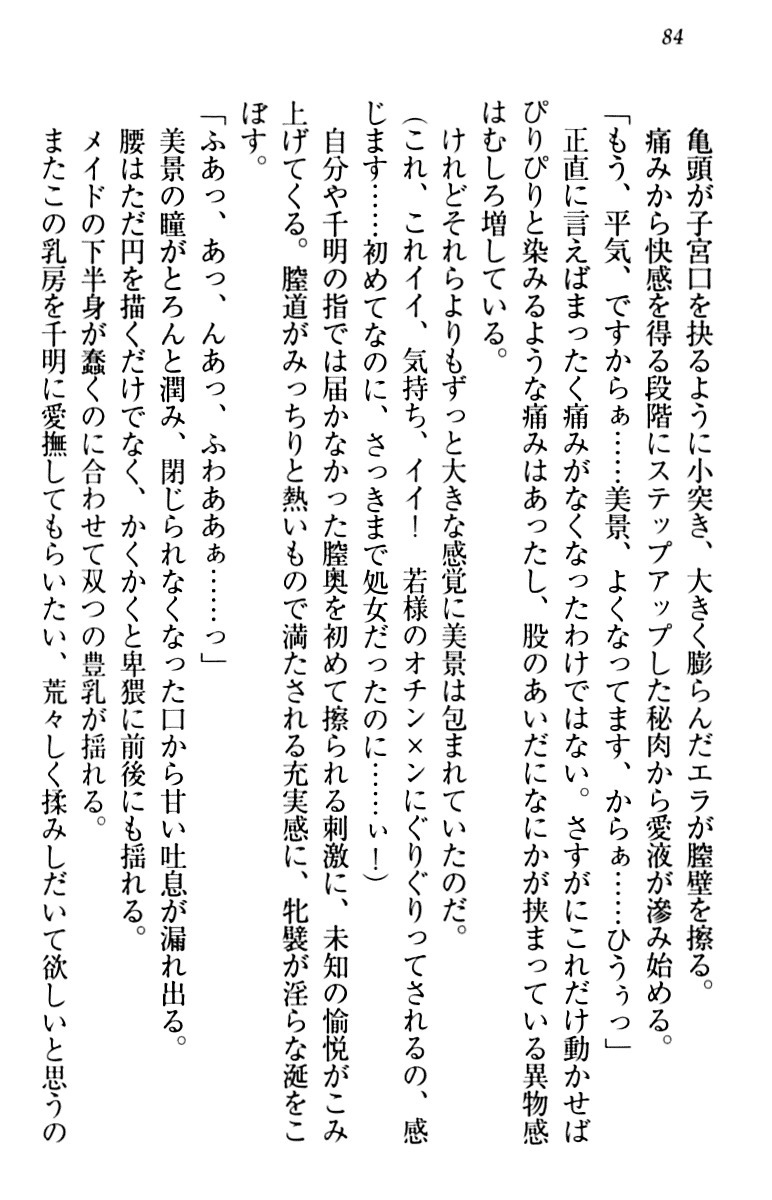 84
亀頭が子宮口を抉るように小突き、大きく膨らんだエラが膣壁を擦る。
痛みから快感を得る段階にステップアップした秘肉から愛液が滲み始める。
「もう、平気、ですからぁ……美景、よくなってます、からぁ……ひうぅっ」
正直に言えばまったく痛みがなくなったわけではない。さすがにこれだけ動かせば
ぴりぴりと染みるような痛みはあったし、股のあいだになにかが挟まっている異物感
はむしろ増している。
けれどそれらよりもずっと大きな感覚に美景は包まれていたのだ。
(これ、これイイ、気持ち、イイ！　若様のオチン×ンにぐりぐりってされるの、感
じます……初めてなのに、さっきまで処女だったのに……ぃ！)
自分や千明の指では届かなかった膣奥を初めて擦られる刺激に、未知の愉悦がこみ
上げてくる。膣道がみっちりと熱いもので満たされる充実感に、牝襞が淫らな涎をこ
ぼす。
「ふあっ、あっ、んあっ、ふわああぁ……っ」
美景の瞳がとろんと潤み、閉じられなくなった口から甘い吐息が漏れ出る。
腰はただ円を描くだけでなく、かくかくと卑猥に前後にも揺れる。
メイドの下半身が蠢くのに合わせて双つの豊乳が揺れる。
またこの乳房を千明に愛撫してもらいたい、荒々しく揉みしだいて欲しいと思うの